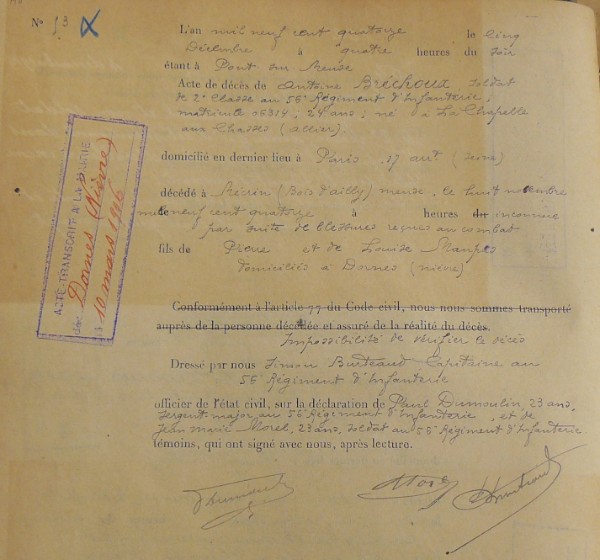 N° 53
L'an mil neuf cent quatorze le cinq
Décembre à quatre heures du soir
étant à Pont sur Meuse
Acte de décès de Antoine Bréchoux soldat
de 2e Classe au 56e Régiment d'Infanterie,
matricule 05314, 24 ans, né à La Chapelle
aux Chasses (Allier).
domicilié en dernier lieu à Paris 17 (Seine)
décédé à (Bois d'ailly) meuse, le huit novembre
mil neuf cent quatorze à heures dit inconnue
par suite de blessures reçues au combat
fils de Pierre et de Louise
domiciliés à Dornes (nièvre)
Conformément à l'article 77 du Code civil, nous nous sommes transporté
auprès de la personne décédée et assuré de la réalité du décès.
Impossibilité de vérifier le décès
Dressé par nous Simon Capitaine au
56e Régiment d'Infanterie
officier de l'état civil, sur la déclaration de Paul Dumoulin, 23 ans,
sergent major au 56e Régiment d'Infanterie, et de
Jean Marie Morel, 23 ans, soldat au 56e Régiment d'Infanterie
témoins, qui ont signé avec nous, après lecture.
ACTE TRANSCRIT A LA MAIRIE
de Dornes (Nièvre)
le 10 mars 1916